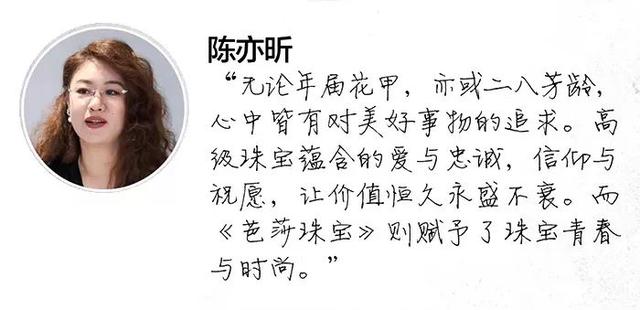 陈亦昕
“无论年届花甲，亦或二八芳龄，
心中皆有对美好事物的追求。高
级珠宝蕴含的爱与忠诚，信仰与
祝愿，让价值恒久永盛不衰。而
《芭莎珠宝》则赋予了珠宝青春
与时尚。”